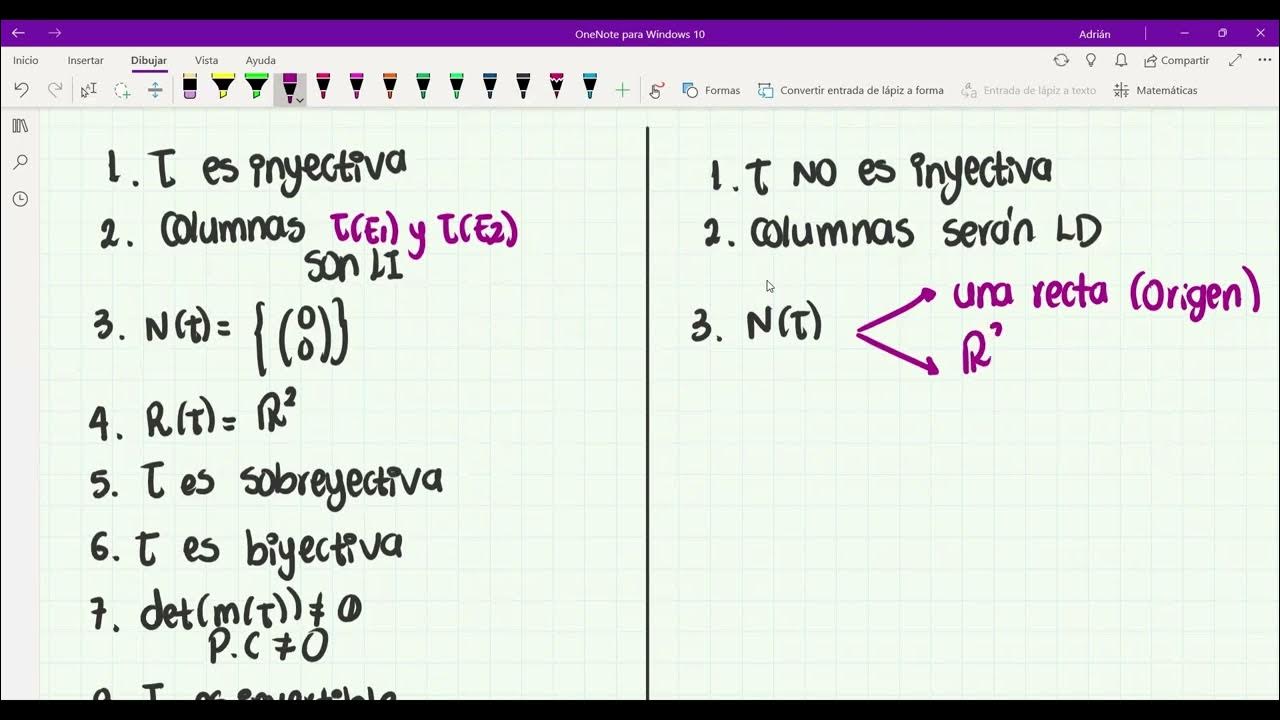 OneNote para Windows 10
Adrián
Inicio Insertar Dibujar Vista Ayuda
Compartir
Formas
Convertir entrada de lápiz a forma
Entrada de lápiz a texto
Matemáticas
1. T es inyectiva
2. Columnas T(E1) y T(E2)
son LI
3. N(T) = {(0 0)}
4. R(T) = ℝ²
5. T es sobreyectiva
6. T es biyectiva
7. det(m(T)) ≠ 0
P.C ≠ 0
T es invertible
1. T NO es inyectiva
2. Columnas serán LD
3. N(T)
una recta (Origen)
ℝ²